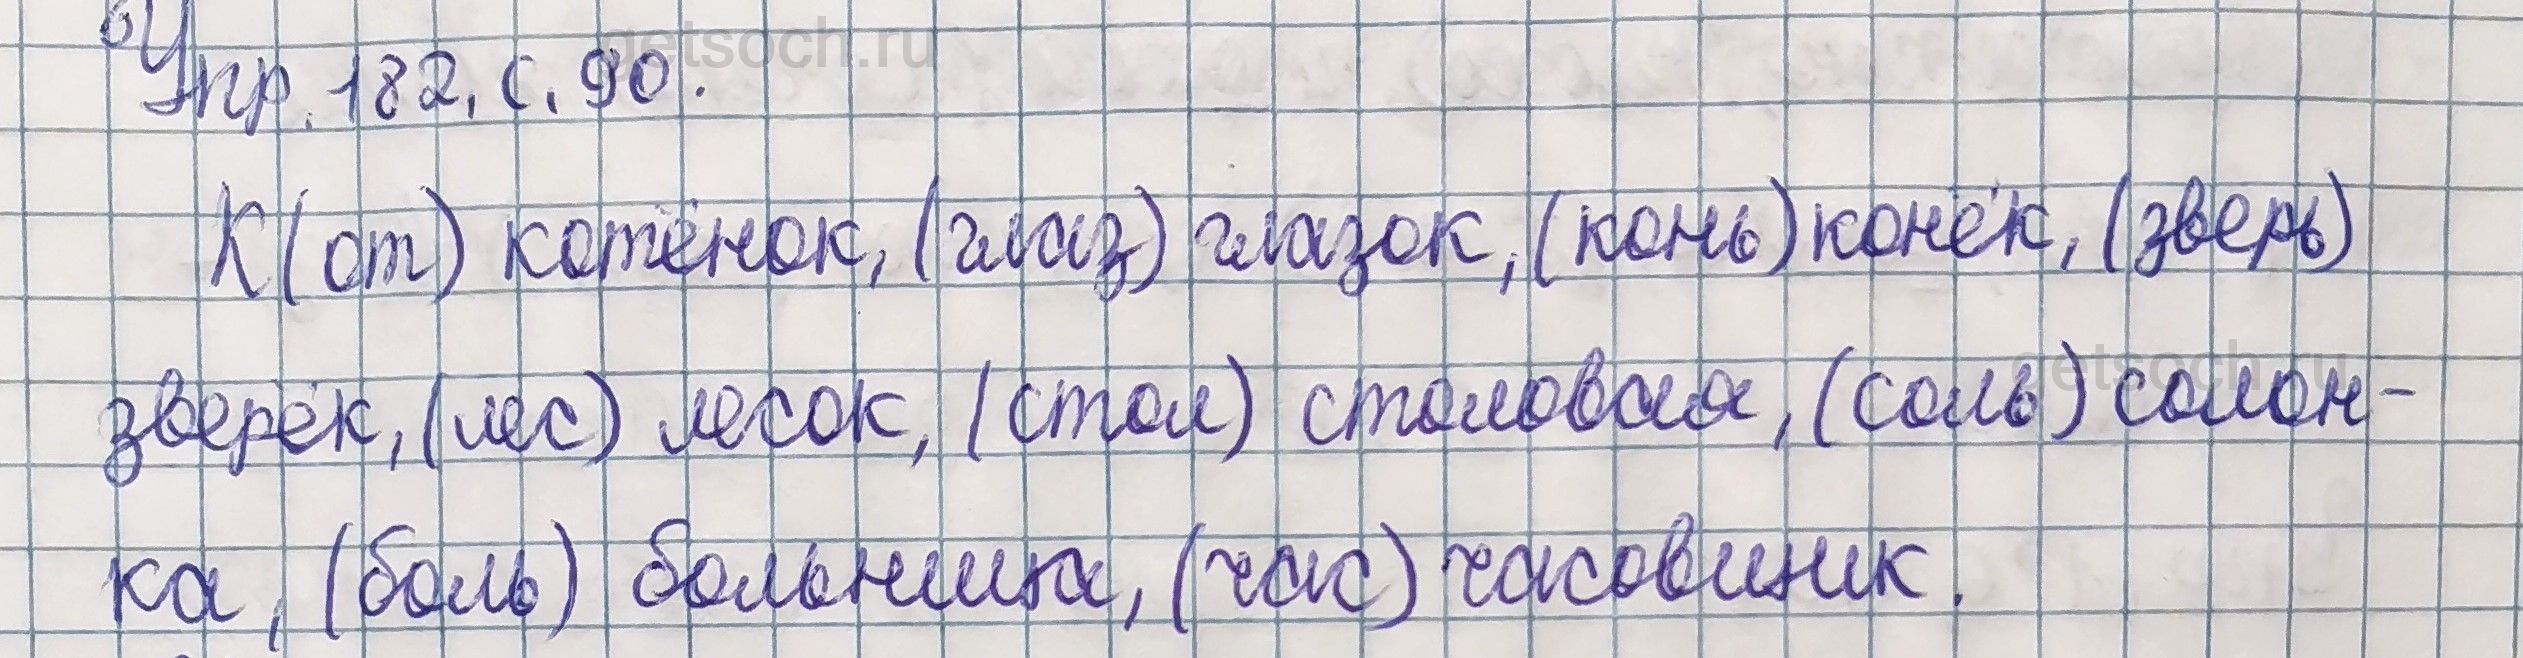 getsoch.ru
Упр. 182, с. 90.
К(от) котёнок, (глаз) глазок, (конь) конёк, (зверь)
зверёк, (лес) лесок, (стол) столовая, (соль) солон-
getsoch.ru
ка, (боль) больница, (час) часовиник.